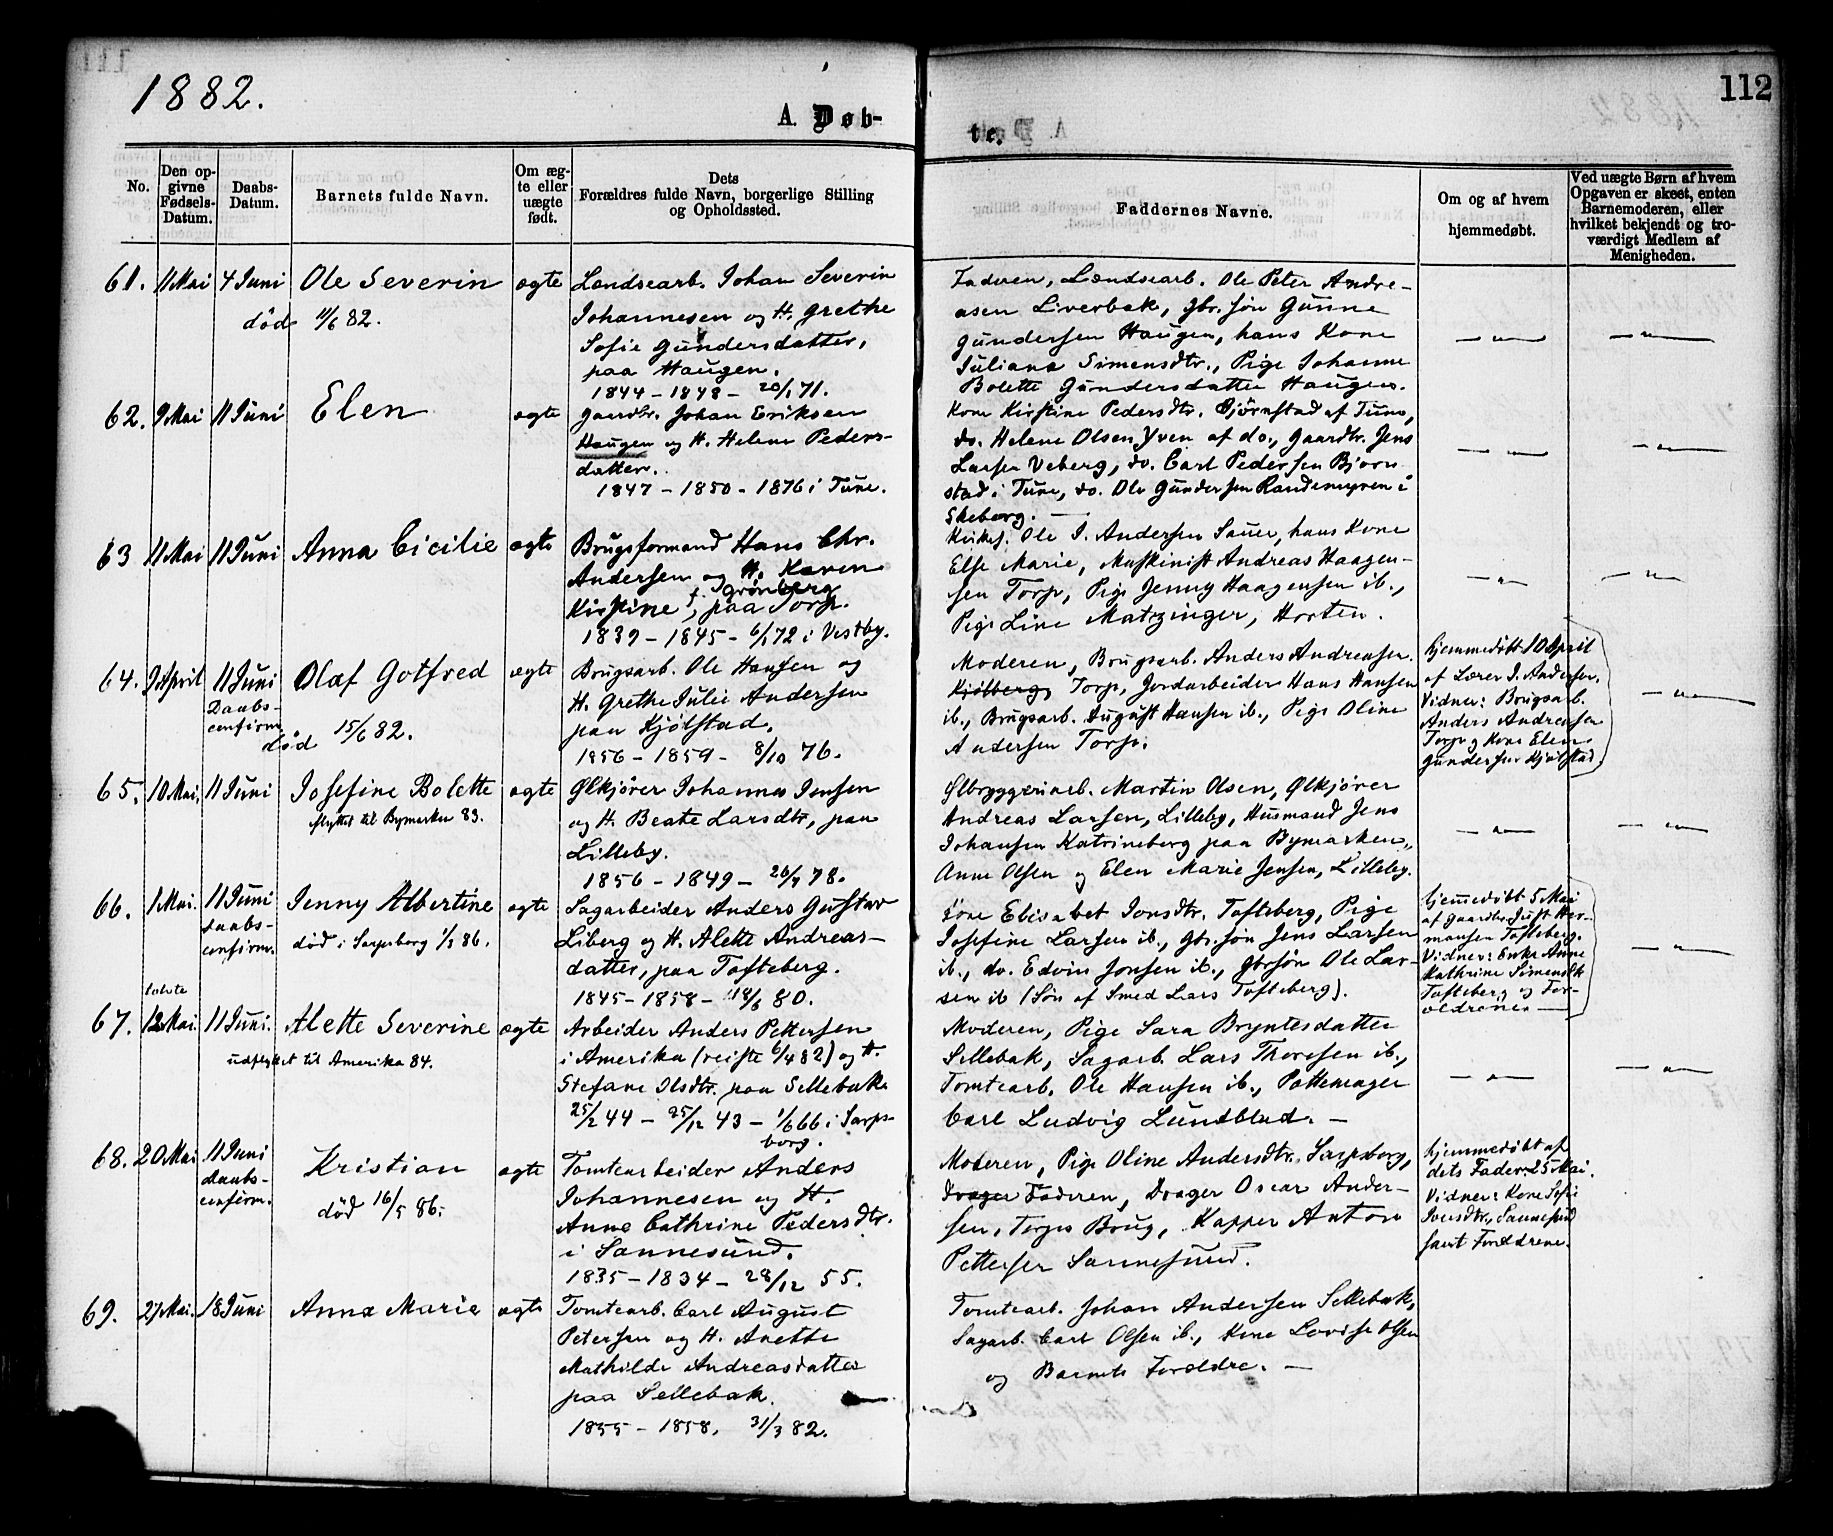 1882.
112
A. Døb-
te.
No.
Den op-
givne
Fødsels-
Datum.
Daabs-
Datum.
Barnets fulde Navn.
Om æg-
te eller
uægte
født.
Dets
Forældres fulde Navn, borgerlige Stilling
og Opholdssted.
Faddernes Navne.
Om og af hvem
hjemmedøbt.
Ved uægte Børn af hvem
Opgaven er skeet, enten
Barnemoderen, eller
hvilket bekjendt og tro-
værdigt Medlem af
Menigheden.
61. 11 Mai 4 Juni Ole Severin ægte
død 11/6 82.
Landsearb. Johan Severin
Johannesen og H. Grethe
Sofie Gundersdatter,
paa Haugen.
1844 - 1848 - 20/1 71.
Faderen, Lændsearb. Ole Peter Andre-
asen Liverbak, gbr. søn Gunne
Gundersen Haugen, hans Kone
Juliane Simensdtr., Pige Johanne
Bolette Gundersdatter Haugen.
62. 9 Mai 11 Juni Elen ægte
Gaardbr. Johan Eriksen
Haugen og H. Helene Peders-
datter.
1847 - 1850 - 1876 i Tune.
Kone Kirstine Pedersdtr. Bjørnstad af Tune,
do. Helene Olsen Yven af do., Gaardbr. Jens
Larsen Veberg, do. Carl Pedersen Bjørn-
stad i Tune, do. Ole Gundersen Randemyren i
Skeberg. —
63 11 Mai 11 Juni Anna Cicilie ægte
Brugsformand Hans Chr.
Andersen og H. Karen
Kirstine f. Grønberg, paa Torp.
1839 - 1845 - 6/1 72 i Vestby.
Kirkes. Ole J. Andersen Sauer, hans Kone
Else Marie, Maskinist Andreas Haagen-
sen Torp, Pige Jenny Haagensen ib.,
Pige Line Matzinger, Horten.
64. 9 April 11 Juni Olaf Gotfred ægte
Daabs-
confirm.
død 15/6 82.
Brugsarb. Ole Hansen og
H. Grethe Julie Andersen
paa Kjølstad.
1856 - 1859 - 8/10 76.
Moderen, Brugsarb. Anders Andreasen
Kjølberg, Torp, Jordarbeider Hans Hansen
ib., Brugsarb. August Hansen ib., Pige Oline
Andersen Torp.
hjemmedøbt 10 April
af Lærer J. Andersen.
Vidner: Brugsarb.
Anders Andreasen
Torp og Kone Elen
Gundersen Kjølstad.
65. 10 Mai, 11 Juni Josefine Bolette ægte
flyttet til Bymarken 83.
Ølkjører Johannes Jensen
og H. Beate Larsdtr, paa
Lilleby.
1856 - 1849 - 20/7 78.
Ølbryggeriarb. Martin Olsen, Ølkjører
Andreas Larsen, Lilleby, Husmand Jens
Johansen Katrineberg paa Bymarken,
Anne Olsen og Elen Marie Jensen, Lilleby.
66. 1 Mai. 11 Juni Jenny Albertine ægte
daabs-
confirm.
død i Sarpsborg 1/3 86.
Sagarbeider Anders Gustav
Liberg og H. Alette Andreas-
datter, paa Tofteberg.
1845 - 1858 - 18/6 80.
Kone Elisabet Jonsdtr. Tofteberg, Pige
Josefine Larsen ib., gbr. søn Jens Larsen
ib., do. Edvin Jonsen ib., gbrsøn Ole Lar-
sen ib (Søn af Smed Lars Tofteberg).
hjemmedøbt 5 Mai
af Gaardbr. Just Her-
mansen Tofteberg.
Vidner: Enke Anne
Kathrine Simensdtr
Tofteberg og For-
ældrene. —
67. 12 Mai. 11 Juni. Alette Severine ægte
udflyttet til Amerika 84.
Arbeider Anders Pettersen
i Amerika (reiste 6/4 82) og H.
Stefane Olsdtr. paa Sellebak
25/2 44 - 25/12 43 - 1/6 66 i Sarps-
borg.
Moderen, Pige Sara Bryntesdatter
Sellebak, Sagarb. Lars Thoresen ib.,
Tomtearb. Ole Hansen ib., Pottemager
Carl Ludvig Lundblad. —
68. 20 Mai 11 Juni Kristian ægte
daabs-
confirm.
død 16/5 86.
Tomtearbeider Anders
Johannesen og H.
Anne Cathrine Pedersdtr.
i Sannesund.
1835 - 1834 - 28/12 55.
Moderen, Pige Oline Andersdtr. Sarpsborg,
Drager Faderen, Drager Oscar Ander-
sen, Torps Brug, Kapper Anton
Pettersen Sannesund.
hjemmedøbt af
dets Fader 25 Mai.
Vidner: Kone Sofie
Iversdtr., Sannesund
samt Forældrene.
69. 27 Mai. 18 Juni Anna Marie ægte
Tomtearb. Carl August
Petersen og H. Anette
Mathilde Andreasdatter
paa Sellebak.
1855 - 1858. 31/3 82.
Tomtearb. Johan Andersen Sellebak,
Sagarb. Carl Olsen ib., Kone Lovise Olsen
og Barnets Forældre. —